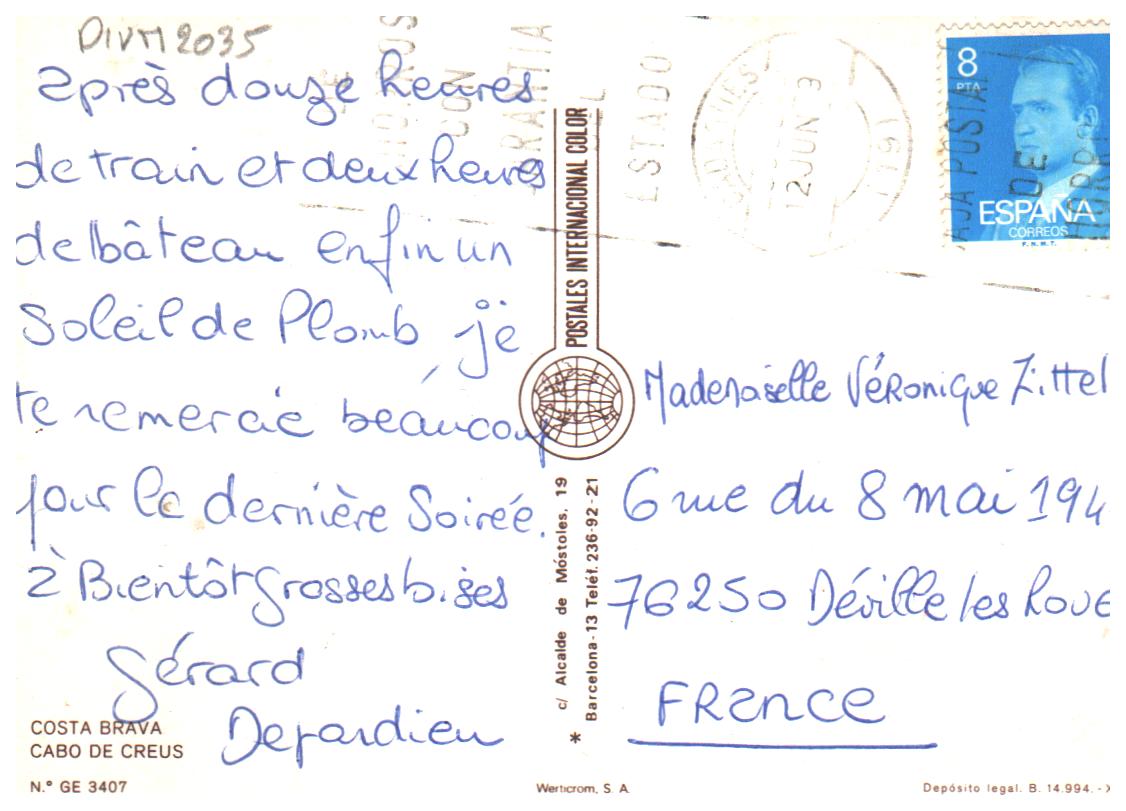 DIVM2035
après douze heures
de train et deux heures
de bâteau enfin un
Soleil de Plomb, je
te remercie beaucoup
pour la dernière Soirée.
à Bientôt Grosses bises
Gérard
Depardieu
COSTA BRAVA
CABO DE CREUS
N.º GE 3407
POSTALES INTERNACIONAL COLOR
c/ Alcalde de Móstoles, 19
Barcelona-13 Teléf. 236-92-21
*
Werticrom, S. A.
ESTADO
CON
12 JUN
CAJA POSTAL
DE
8
PTA
ESPAÑA
CORREOS
F.N.M.T.
Mademoiselle Véronique Zittel
6 rue du 8 mai 194
76250 Déville les Roue
FRANCE
Depósito legal. B. 14.994. - X